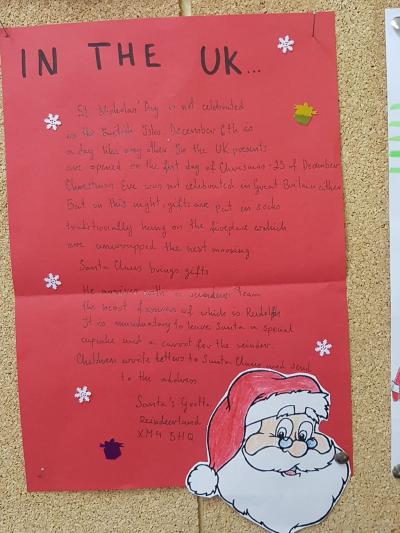 IN THE UK...
St Nicholas' Day is not celebrated
in the British Isles. December 6th is
a day like any other. In the UK presents
are opened on the first day of Christmas - 25 of December
Christmas Eve was not celebrated in Great Britain either
But on this night, gifts are put in socks
traditionally hung on the fireplace which
are unwrapped the next morning
Santa Claus brings gifts
He arrives with a reindeer team
the most famous of which is Rudolph
It is mandatory to leave Santa a special
cupcake and a carrot for the reindeer.
Children wrote letters to Santa Claus and send
to the address
Santa's Grotto
Reindeerland
XM4 5HQ